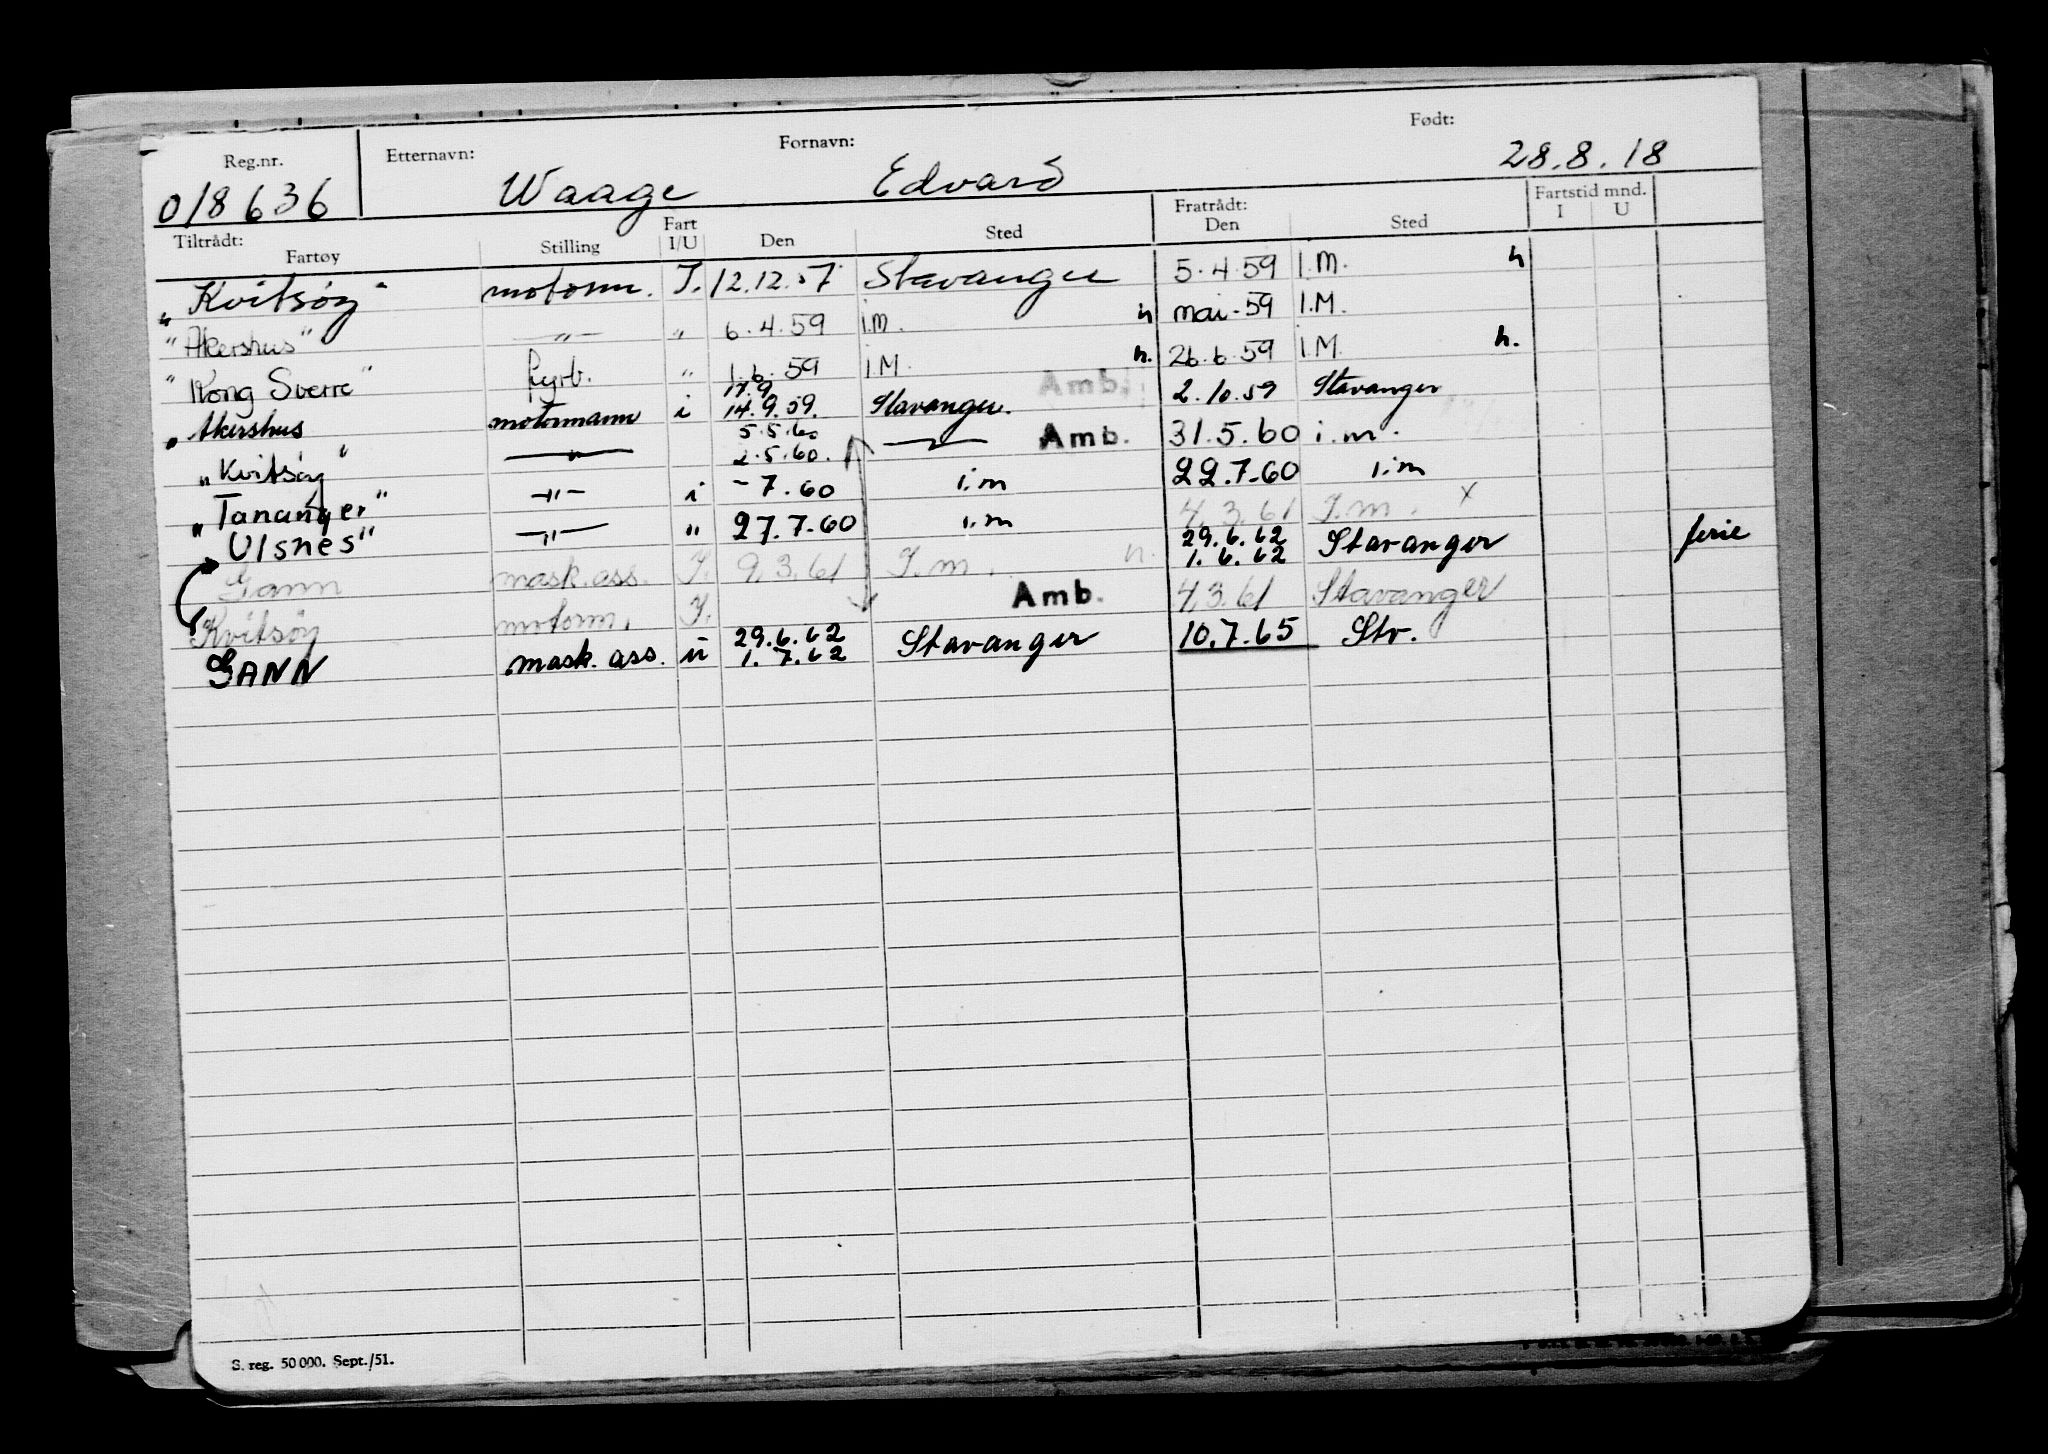 Reg.nr. Etternavn: Fornavn: Født:
018636 Waage Edvard 28.8.18
Tiltrådt: Fartøy Stilling Fart I/U Den Sted Fratrådt: Den Sted Fartstid mnd. I U
"Kvitsøy" motorm. I. 12.12.57 Stavanger 5.4.59 I.M. h
"Akershus" —"— " 6.4.59 i.m. h mai-59 I.M.
"Kong Sverre" fyrb. " 1.6.59 I.M. h. 26.6.59 I.M. h.
17.9
"Akershus motormann i 14.9.59. Stavanger. Amb. 2.10.59 Stavanger
5.5.60
"Kvitsøy" —"— 2.5.60. —"— Amb. 31.5.60 i.m.
"Tananger" —"— i - 7.60 i.m 22.7.60 i.m
Ulsnes" —"— " 27.7.60 i.m 4.3.61 I.m. x
29.6.62
Gann mask.ass. I. 9.3.61 I.m. h. 1.6.62 Stavanger ferie
Kvitsøy motorm. I. Amb. 4.3.61 Stavanger
29.6.62
GANN mask. ass. u 1.7.62 Stavanger 10.7.65 Stv.
S. reg. 50 000. Sept./51.